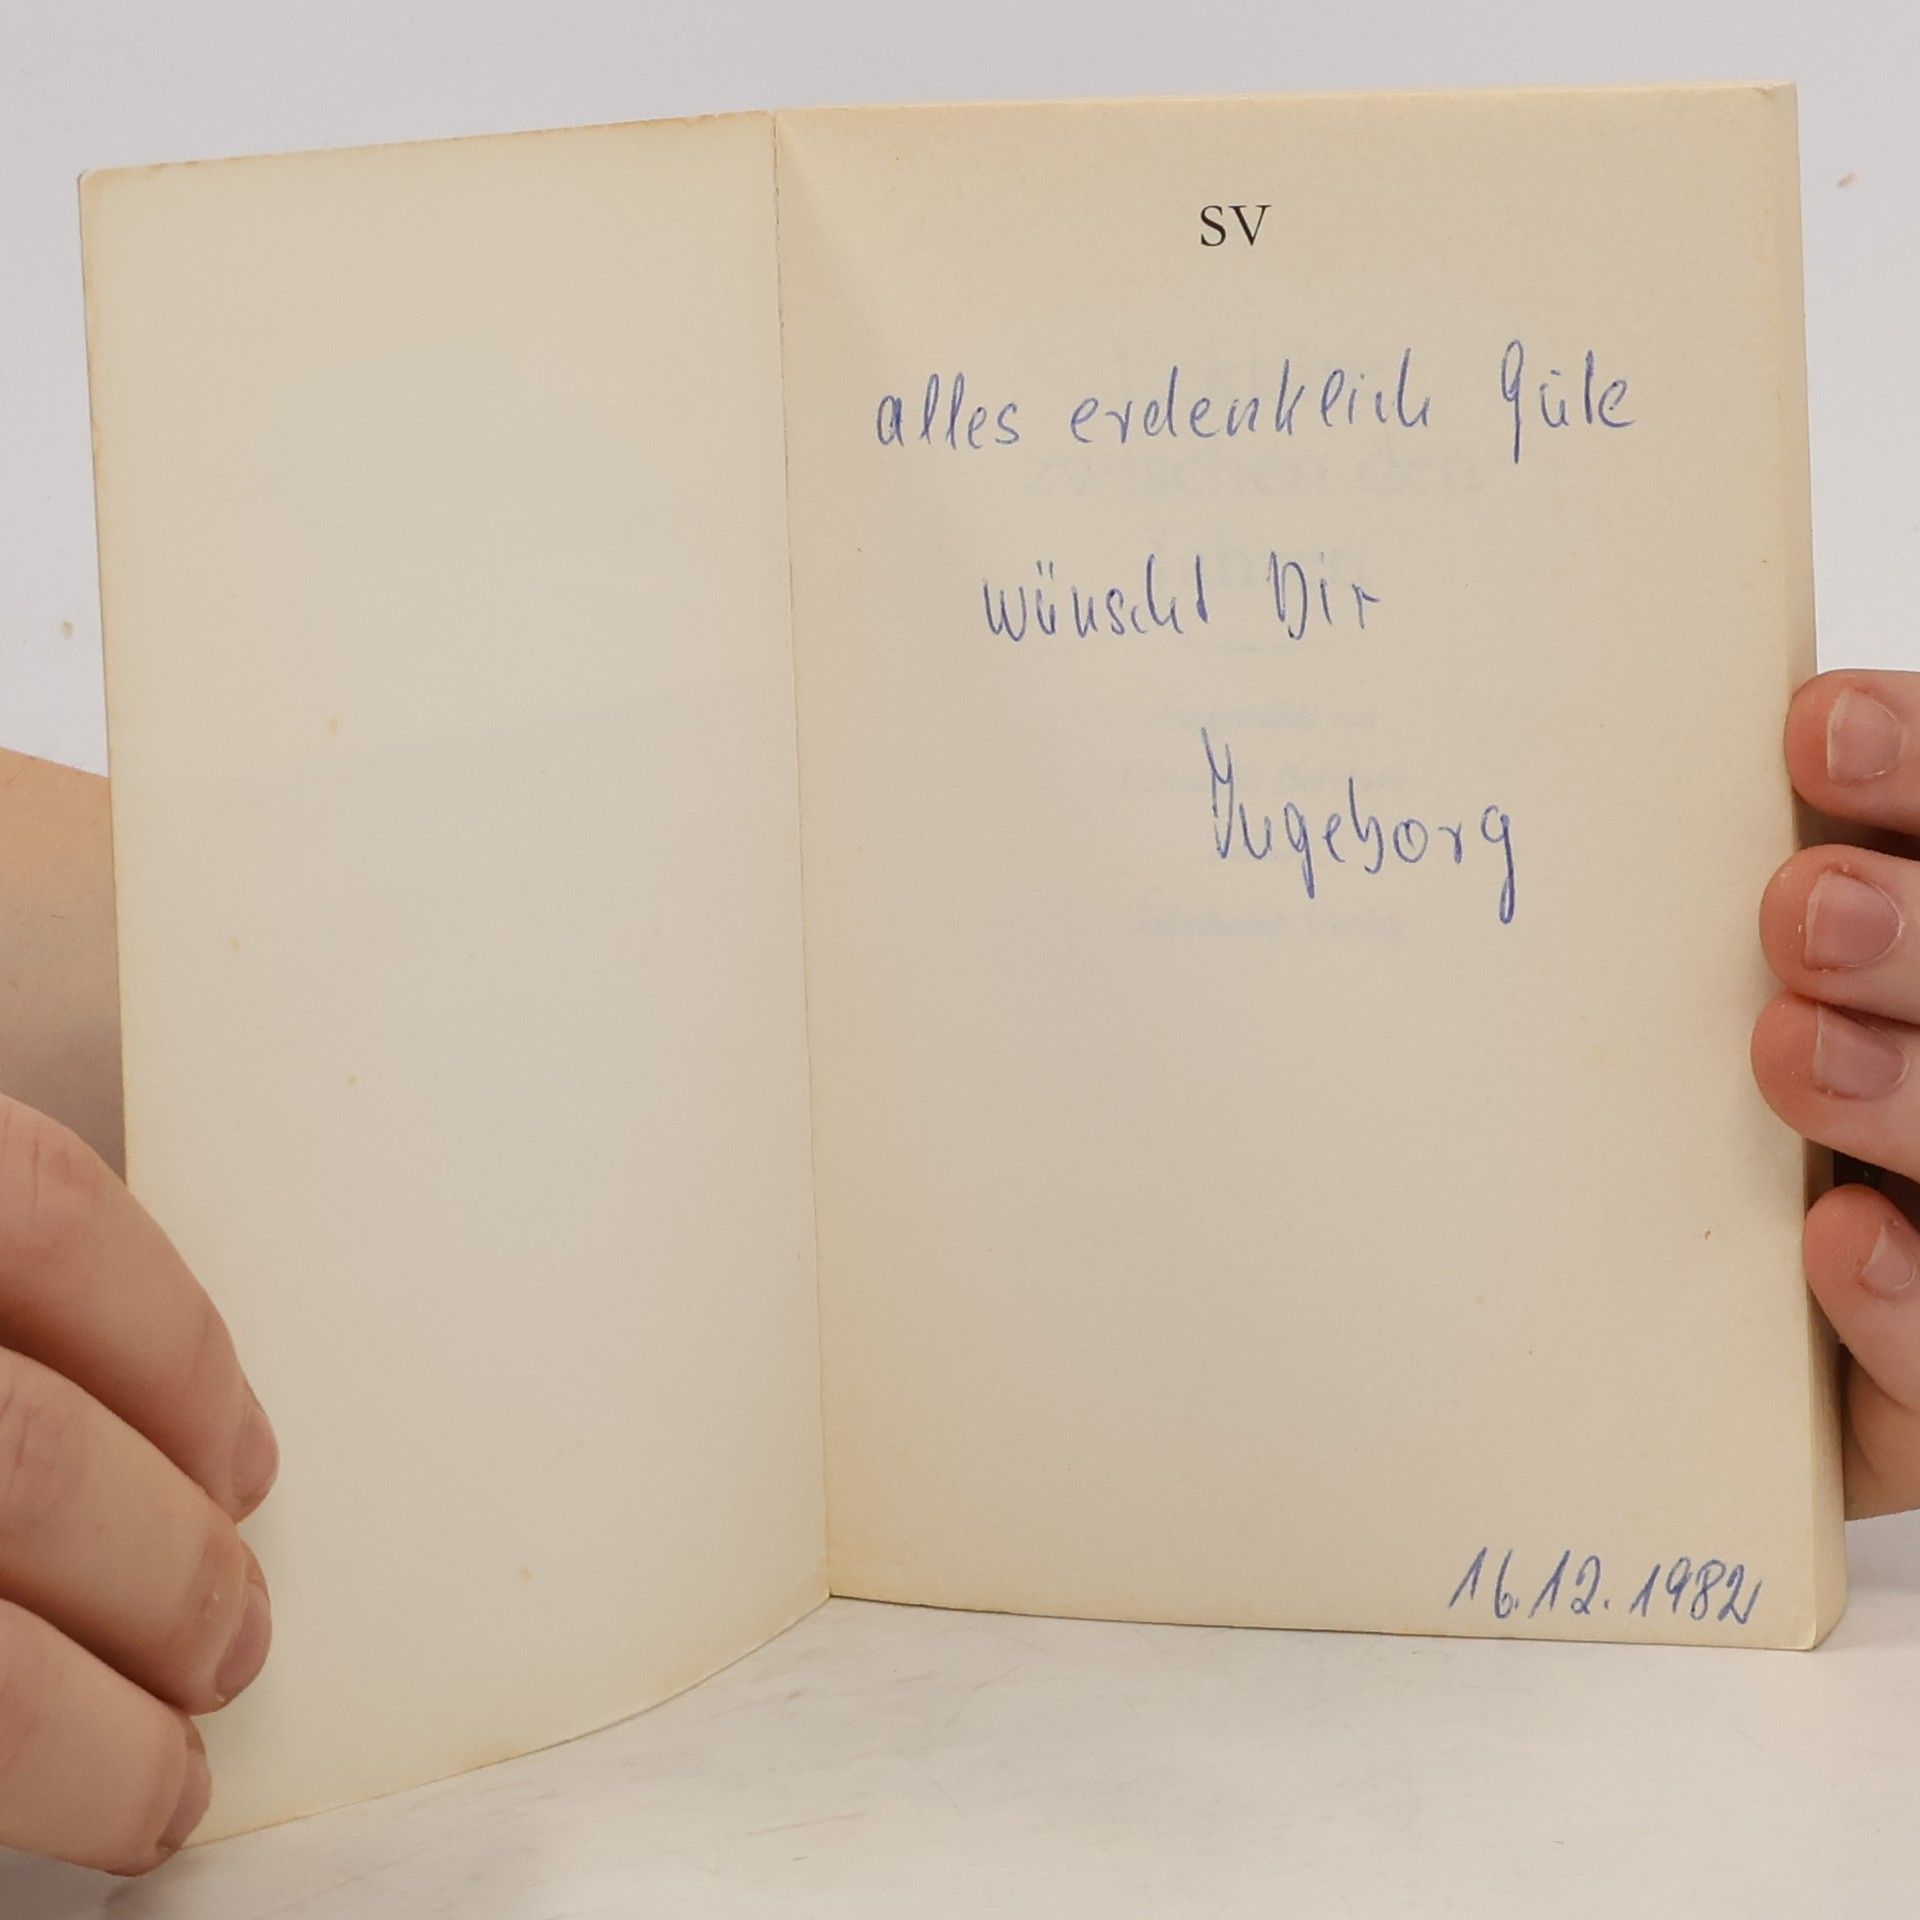 SV
alles erdenklich Gute
wünscht Dir
Ingeborg
16.12.1982